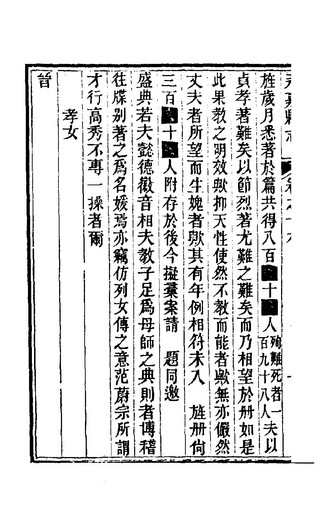 旌歲月悉著於篇共得八百十人殉難死者一百九十八人夫以
貞孝著難矣以節烈著尤難之難矣而乃相望於册如是
此果敎之明效歟抑天性使然不敎而能者歟無亦儼然
丈夫者所望而生媿者歟其有年例相符未入旌册尙
三百十人附存於後今擬彙案請題同邀
盛典若夫懿德徽音相夫敎子足爲母師之典則者博稽
往牒别著之爲名媛焉亦竊仿列女傳之意范蔚宗所謂
才行高秀不專一操者爾
孝女
晉